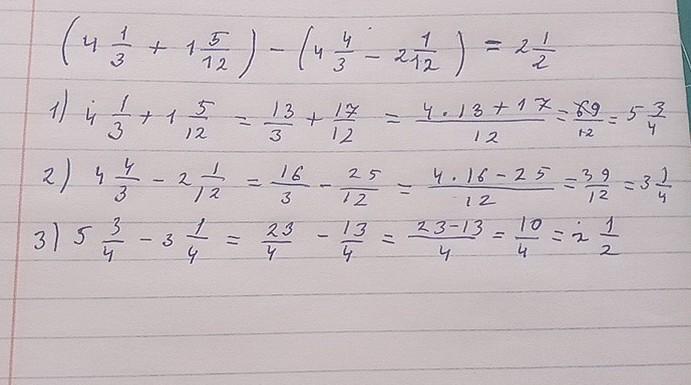 (4 1/3 + 1 5/12) - (4 4/3 - 2 1/12) = 2 1/2
1) 4 1/3 + 1 5/12 = 13/3 + 17/12 = (4·13+17)/12 = 69/12 = 5 3/4
2) 4 4/3 - 2 1/12 = 16/3 - 25/12 = (4·16-25)/12 = 39/12 = 3 1/4
3) 5 3/4 - 3 1/4 = 23/4 - 13/4 = (23-13)/4 = 10/4 = 2 1/2